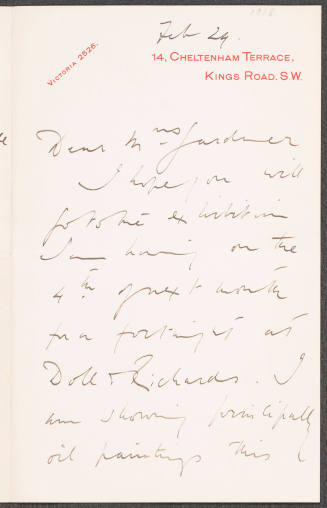 1908
Feb 29.
VICTORIA 2526.
14, CHELTENHAM TERRACE,
KINGS ROAD. S.W.
Dear Mrs Gardner
I hope you will
go to the exhibition
I am having on the
4th of next month
for a fortnight at
Doll & Richards. I
am showing principally
oil paintings this